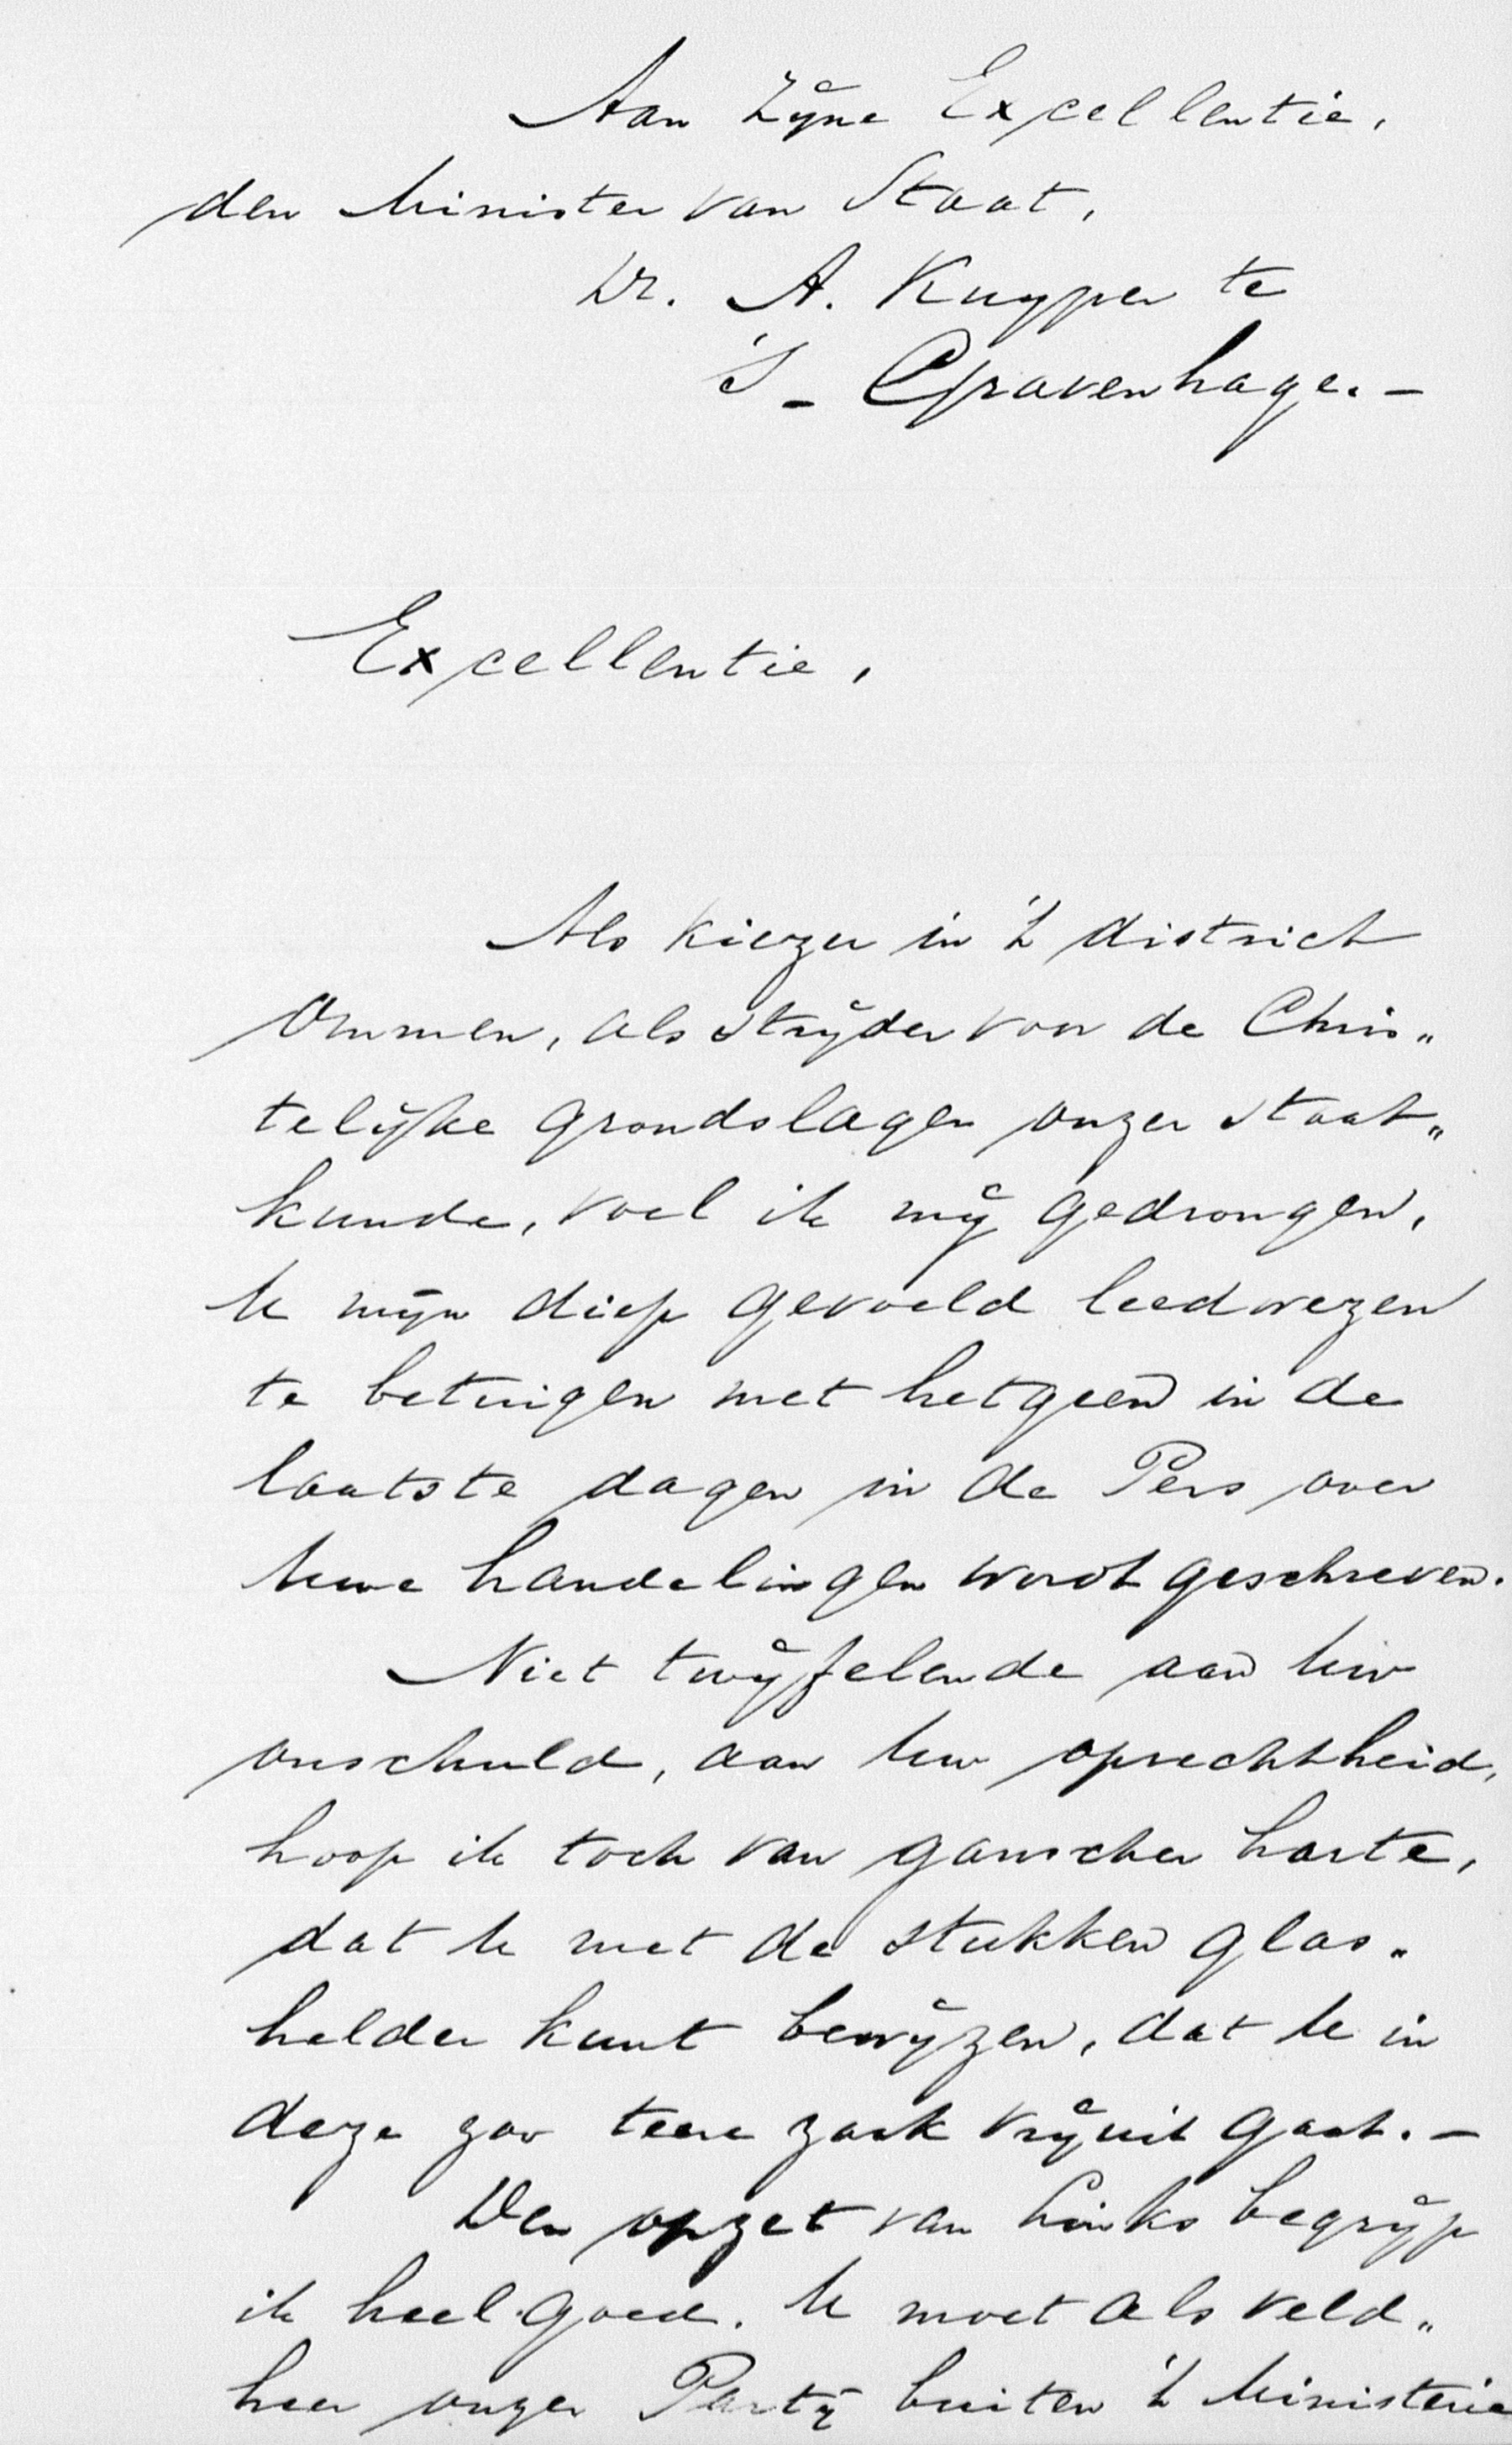 Aan Zijne Excellentie,
den Minister van Staat,
Dr. A. Kuyper te
'S-Gravenhage.-
Excellentie,
Als kiezer in 't district
Ommen, als strijder voor de Chris„
telijke grondslagen onzer staat„
kunde, voel ik mij gedrongen,
U mijn diep gevoeld leedwezen
te betuigen met hetgeen in de
laatste dagen in de Pers over
Uwe handelingen wordt geschreven.
Niet twijfelende aan Uw
onschuld, aan Uw oprechtheid,
hoop ik toch van ganscher harte,
dat U met de stukken glas„
helder kunt bewijzen, dat U in
deze zoo teere zaak vrijuit gaat.-
Den opzet van Links begrijp
ik heel goed. U moet als veld„
heer onzer Partij buiten 't Ministerie